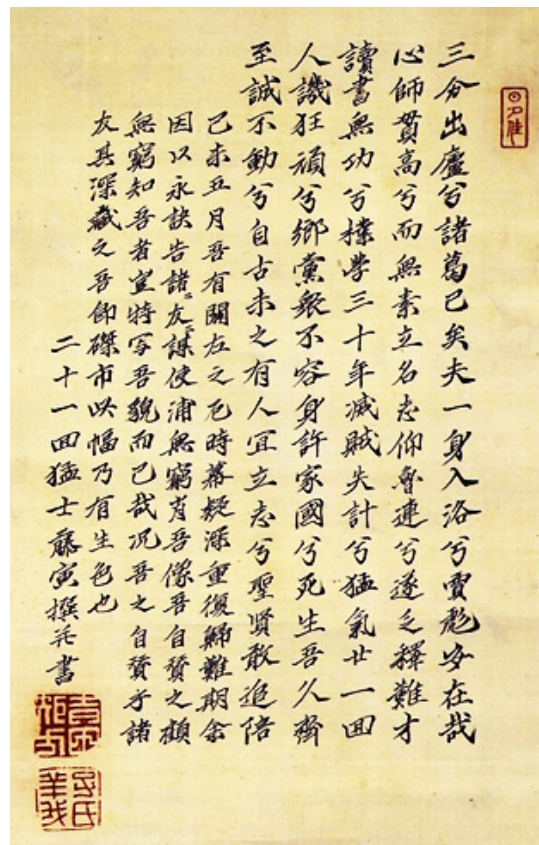 三分出廬兮諸葛已矣夫一身入洛兮賈彪安在哉
心師貫高兮而無素立名志仰魯連兮遂乏釋難才
讀書無功兮樸學三十年滅賊失計兮猛氣廿一回
人譏狂頑兮鄉黨衆不容身許家國兮死生吾久齊
至誠不動兮自古未之有人宜立志兮聖賢敢追陪
己未五月吾有關左之厄時幕疑深重復歸難期余
因以永訣告諸〻友〻謀使浦無窮肖吾像吾自贊之顧
無窮知吾者豈特写吾貌而已哉況吾之自贊乎諸
友其深藏之吾即磔市此幅乃有生色也
二十一回猛士藤寅撰并書